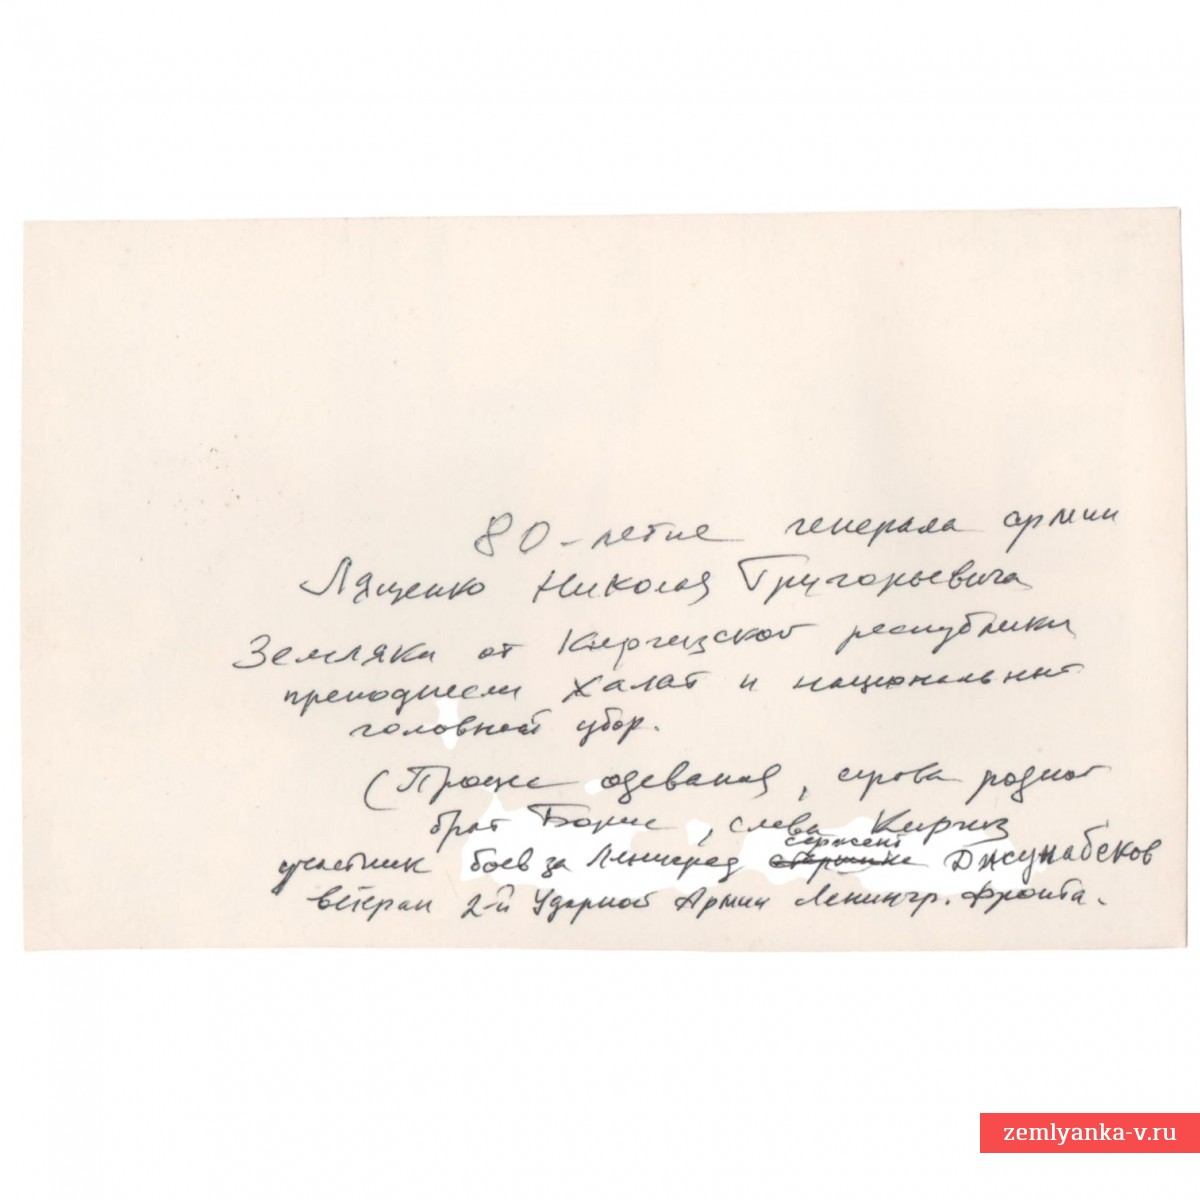 80-летие генерала армии
Лященко Николая Григорьевича
Земляки от Киргизской республики
преподнесли Халат и национальный
головной убор.
(Процес одевания, справа родной
брат Борис, слева Киргиз
участник боев за Ленинград сержент Джунабеков
ветеран 2-й Ударной Армии Ленингр. фронта.
zemlyanka-v.ru